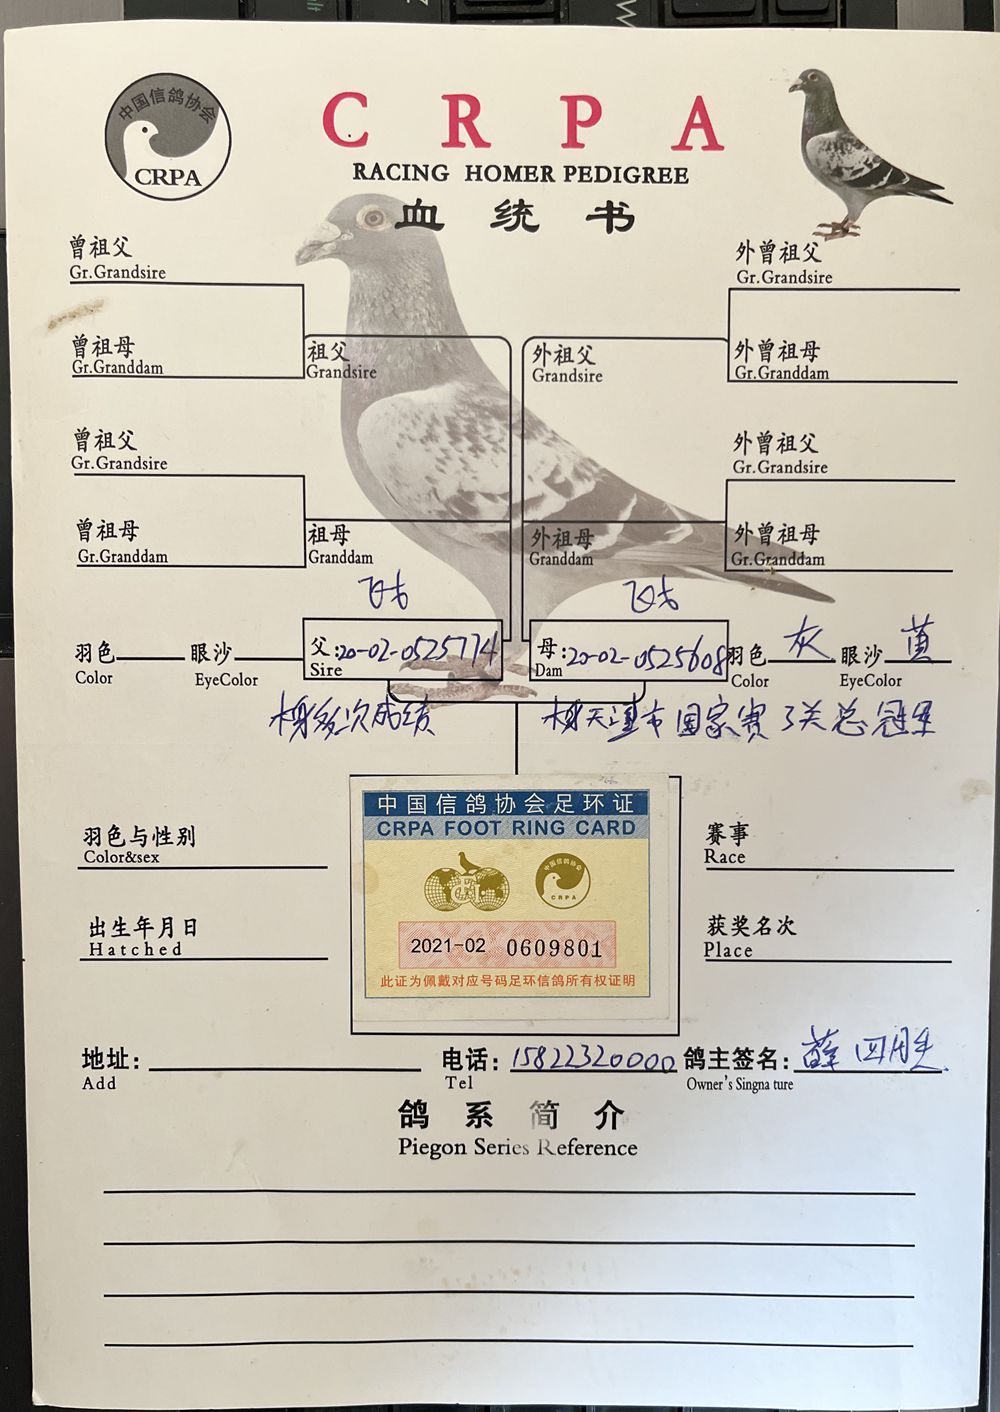 中国信鸽协会
CRPA
C R P A
RACING HOMER PEDIGREE
血 统 书
曾祖父
Gr.Grandsire
外曾祖父
Gr.Grandsire
曾祖母
Gr.Granddam
祖父
Grandsire
外祖父
Grandsire
外曾祖母
Gr.Granddam
曾祖父
Gr.Grandsire
外曾祖父
Gr.Grandsire
曾祖母
Gr.Granddam
祖母
Granddam
外祖母
Granddam
外曾祖母
Gr.Granddam
羽色 眼沙
Color EyeColor
父:20-02-0525774
Sire
母:20-02-0525608
Dam
羽色 灰 眼沙 黄
Color EyeColor
多次成绩
天津市国家赛3关总冠军
中国信鸽协会足环证
CRPA FOOT RING CARD
中国信鸽协会
CRPA
2021-02 0609801
此证为佩戴对应号码足环信鸽所有权证明
羽色与性别
Color&sex
赛事
Race
出生年月日
Hatched
获奖名次
Place
地址:
Add
电话: 15822320000
Tel
鸽主签名: 薛四
Owner's Singna ture
鸽 系 简 介
Piegon Series Reference